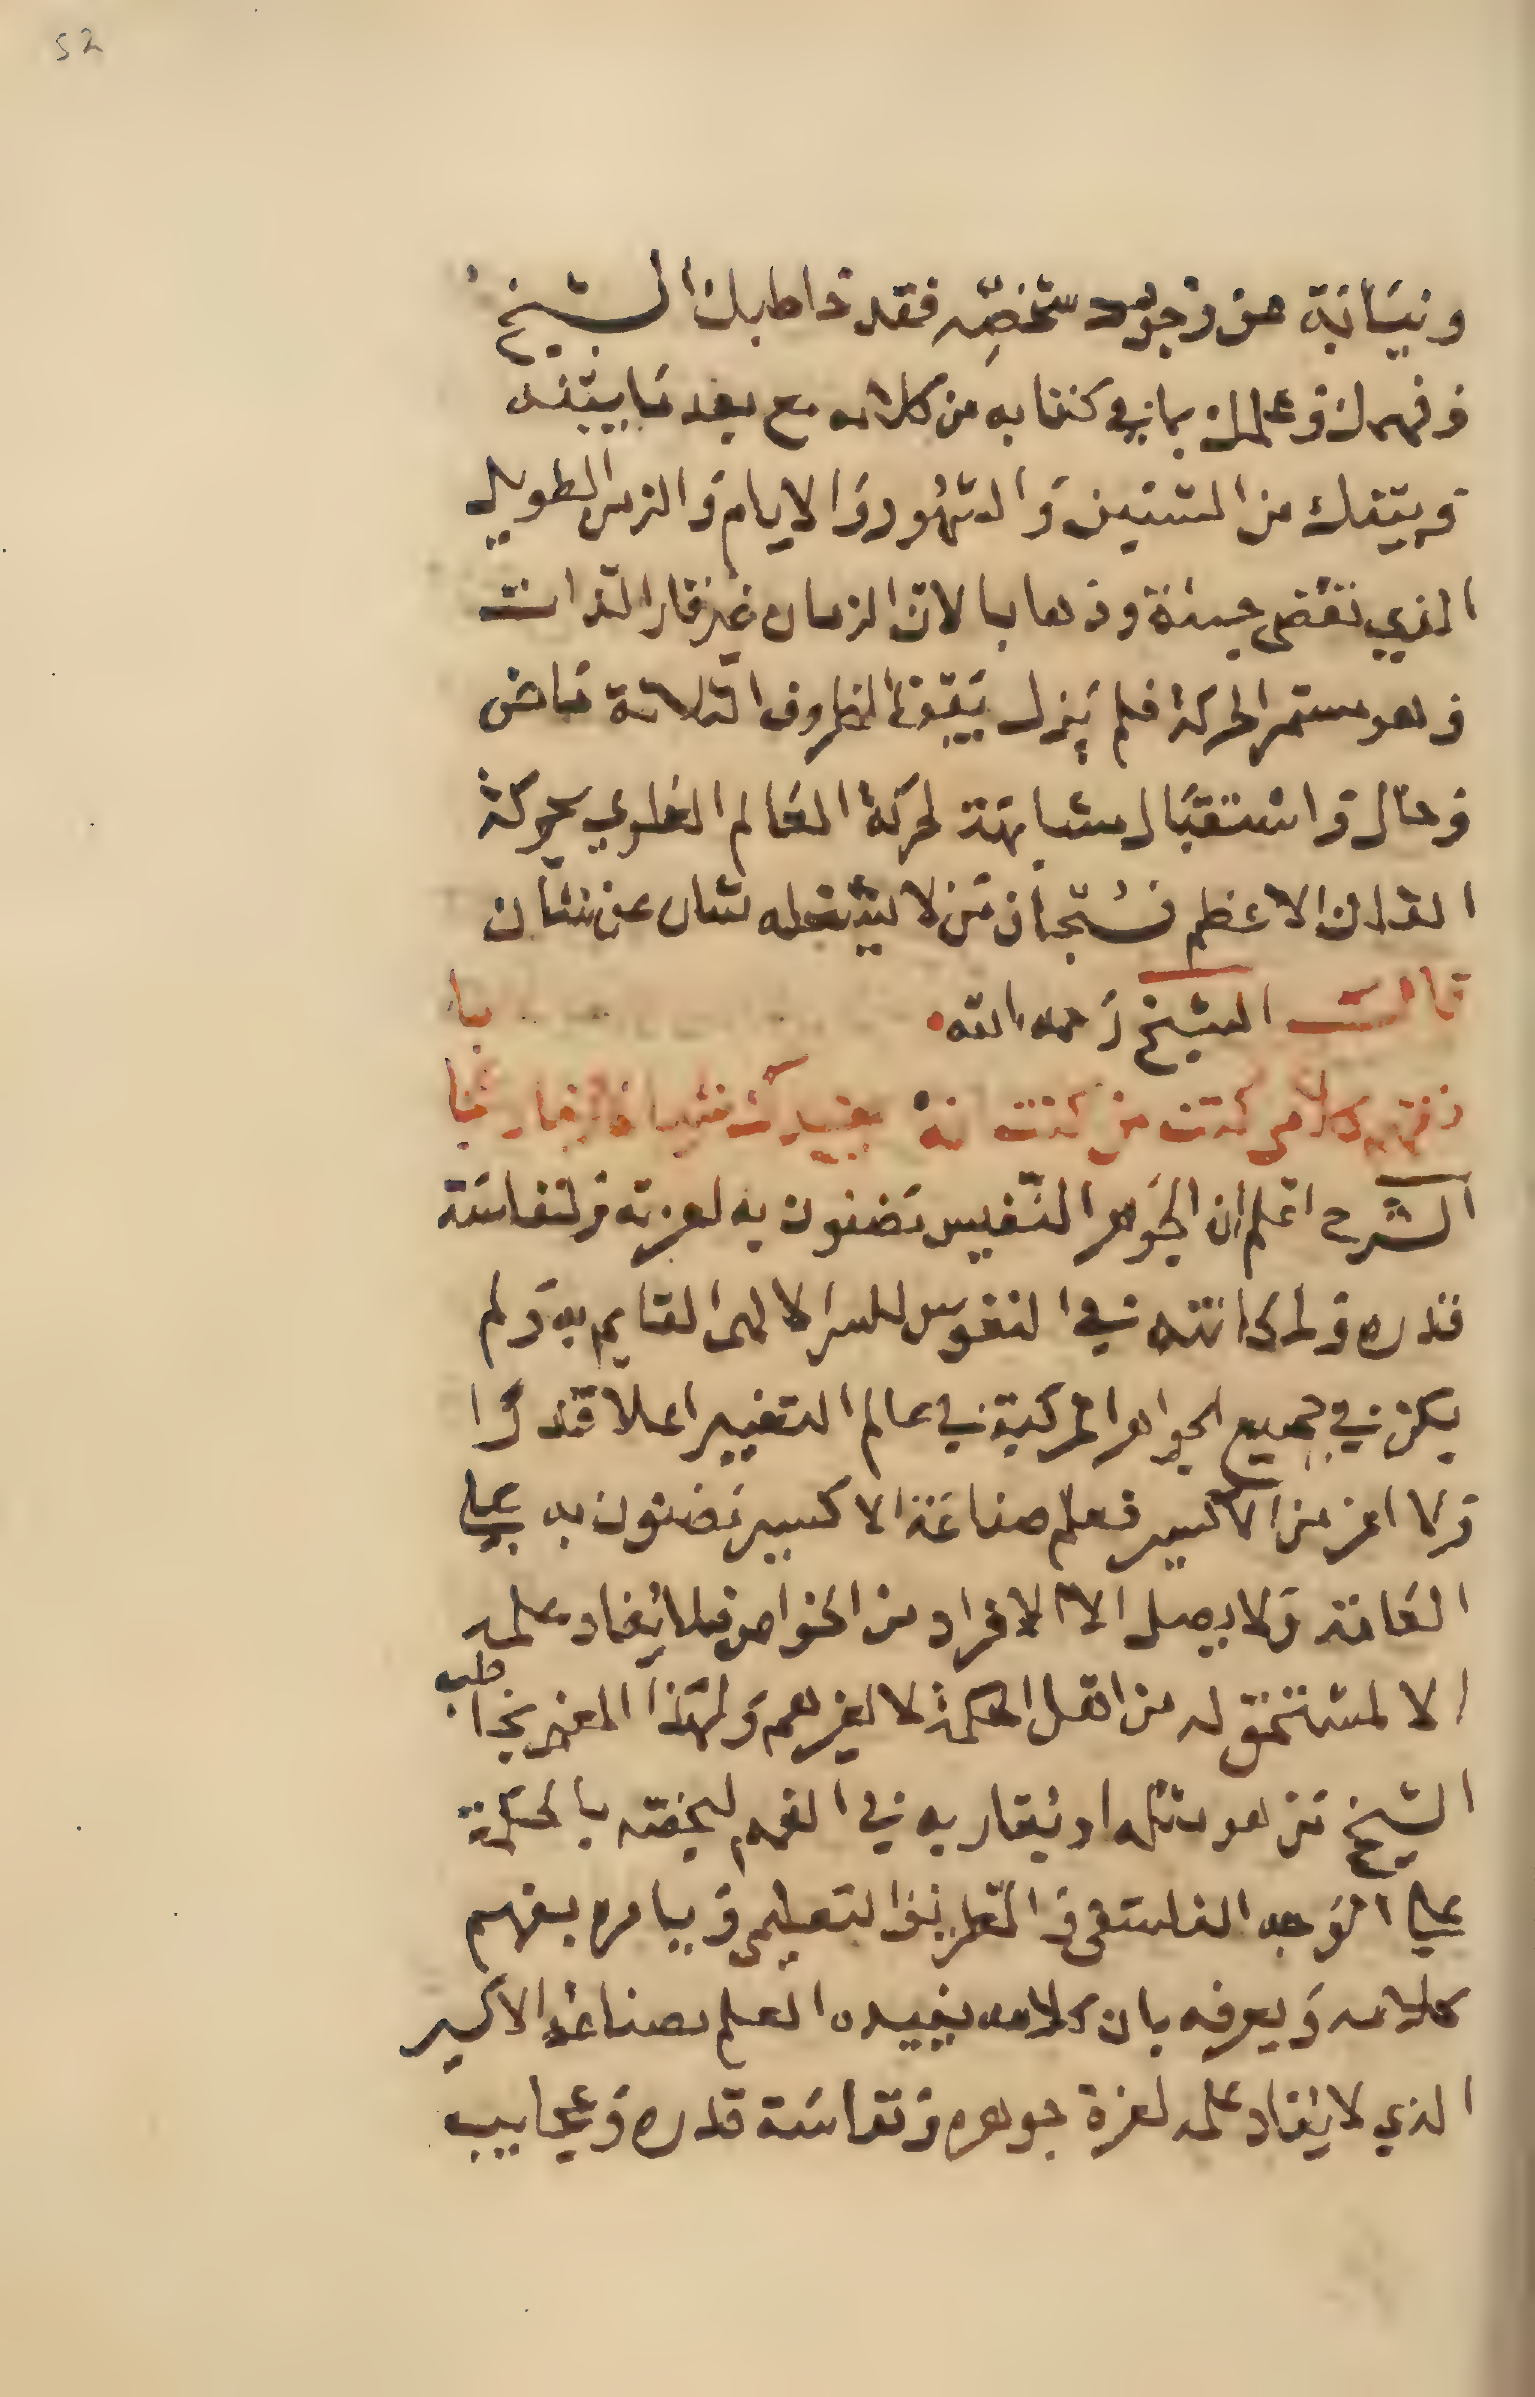 52
ونيابة عن وجود شخصه فقد خاطبك الشيخ
وفهمك وعلمك بما في كتابه من كلامه مع بعد ما بينه
وبينك من السنين والشهور والايام والزمن الطويل
الذي نقضى جيئة وذهابا لان الزمان غير قار الذات
وهو مستمر الحركة فلم يزل الظروف الثلاثة ماض
وحال واستقبال مشابهة لحركة العالم العلوي بحركة
الفلك الاعظم فسبحان من لا يشغله شان عن شان
قال الشيخ رحمه الله يا
من كنت يفيدك
الشرح اعلم ان الجوهر النفيس مضنون به لعزته ولنفاسة
قدره ولمكانته في النفوس للسر الالهى القايم به ولم
يكن في جميع الجواهر المركبة في عالم التغيير اعلا قدرا
ولا اعز من الاكسير فعلم صناعة الاكسير مضنون به على
العامة ولا يصل الا الافراد من الخواص فلا يفاد علمه
الا لمستحق له من اهل الحكمة لا لغيرهم ولهذا المعنى يخاطب
الشيخ من هو مثله او يقاربه في الفهم ليخصه بالحكمة
على الوجه الفلسفى والطريق التعليمى ويامره بفهم
كلامه ويعرفه بان كلامه يفيده العلم بصناعة الاكسير
الذي لا يفاد علمه لعزة جوهره ونفاسة قدره وعجايب